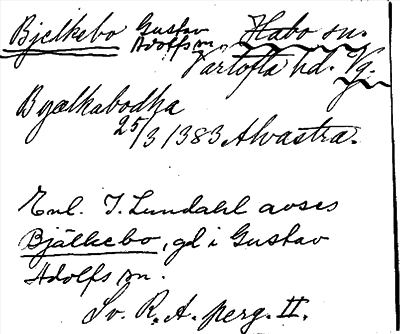 Bjelkebo Gustav Adolfs sn., Habo sn.
Vartofta hd. Vg.
Byælkabodha
25/3 1383 Alvastra.
Enl. I. Lundahl avses
Bjälkebo, gd i Gustav
Adolfs sn.
Sv. R. A. perg. II.